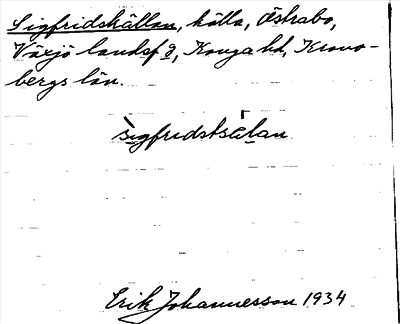 Sigfridskällan, källa, Östrabo,
Växjö landsf g, Konga hd, Krono-
bergs län.
sigfridstsɛlan
Erik Johannesson 1934